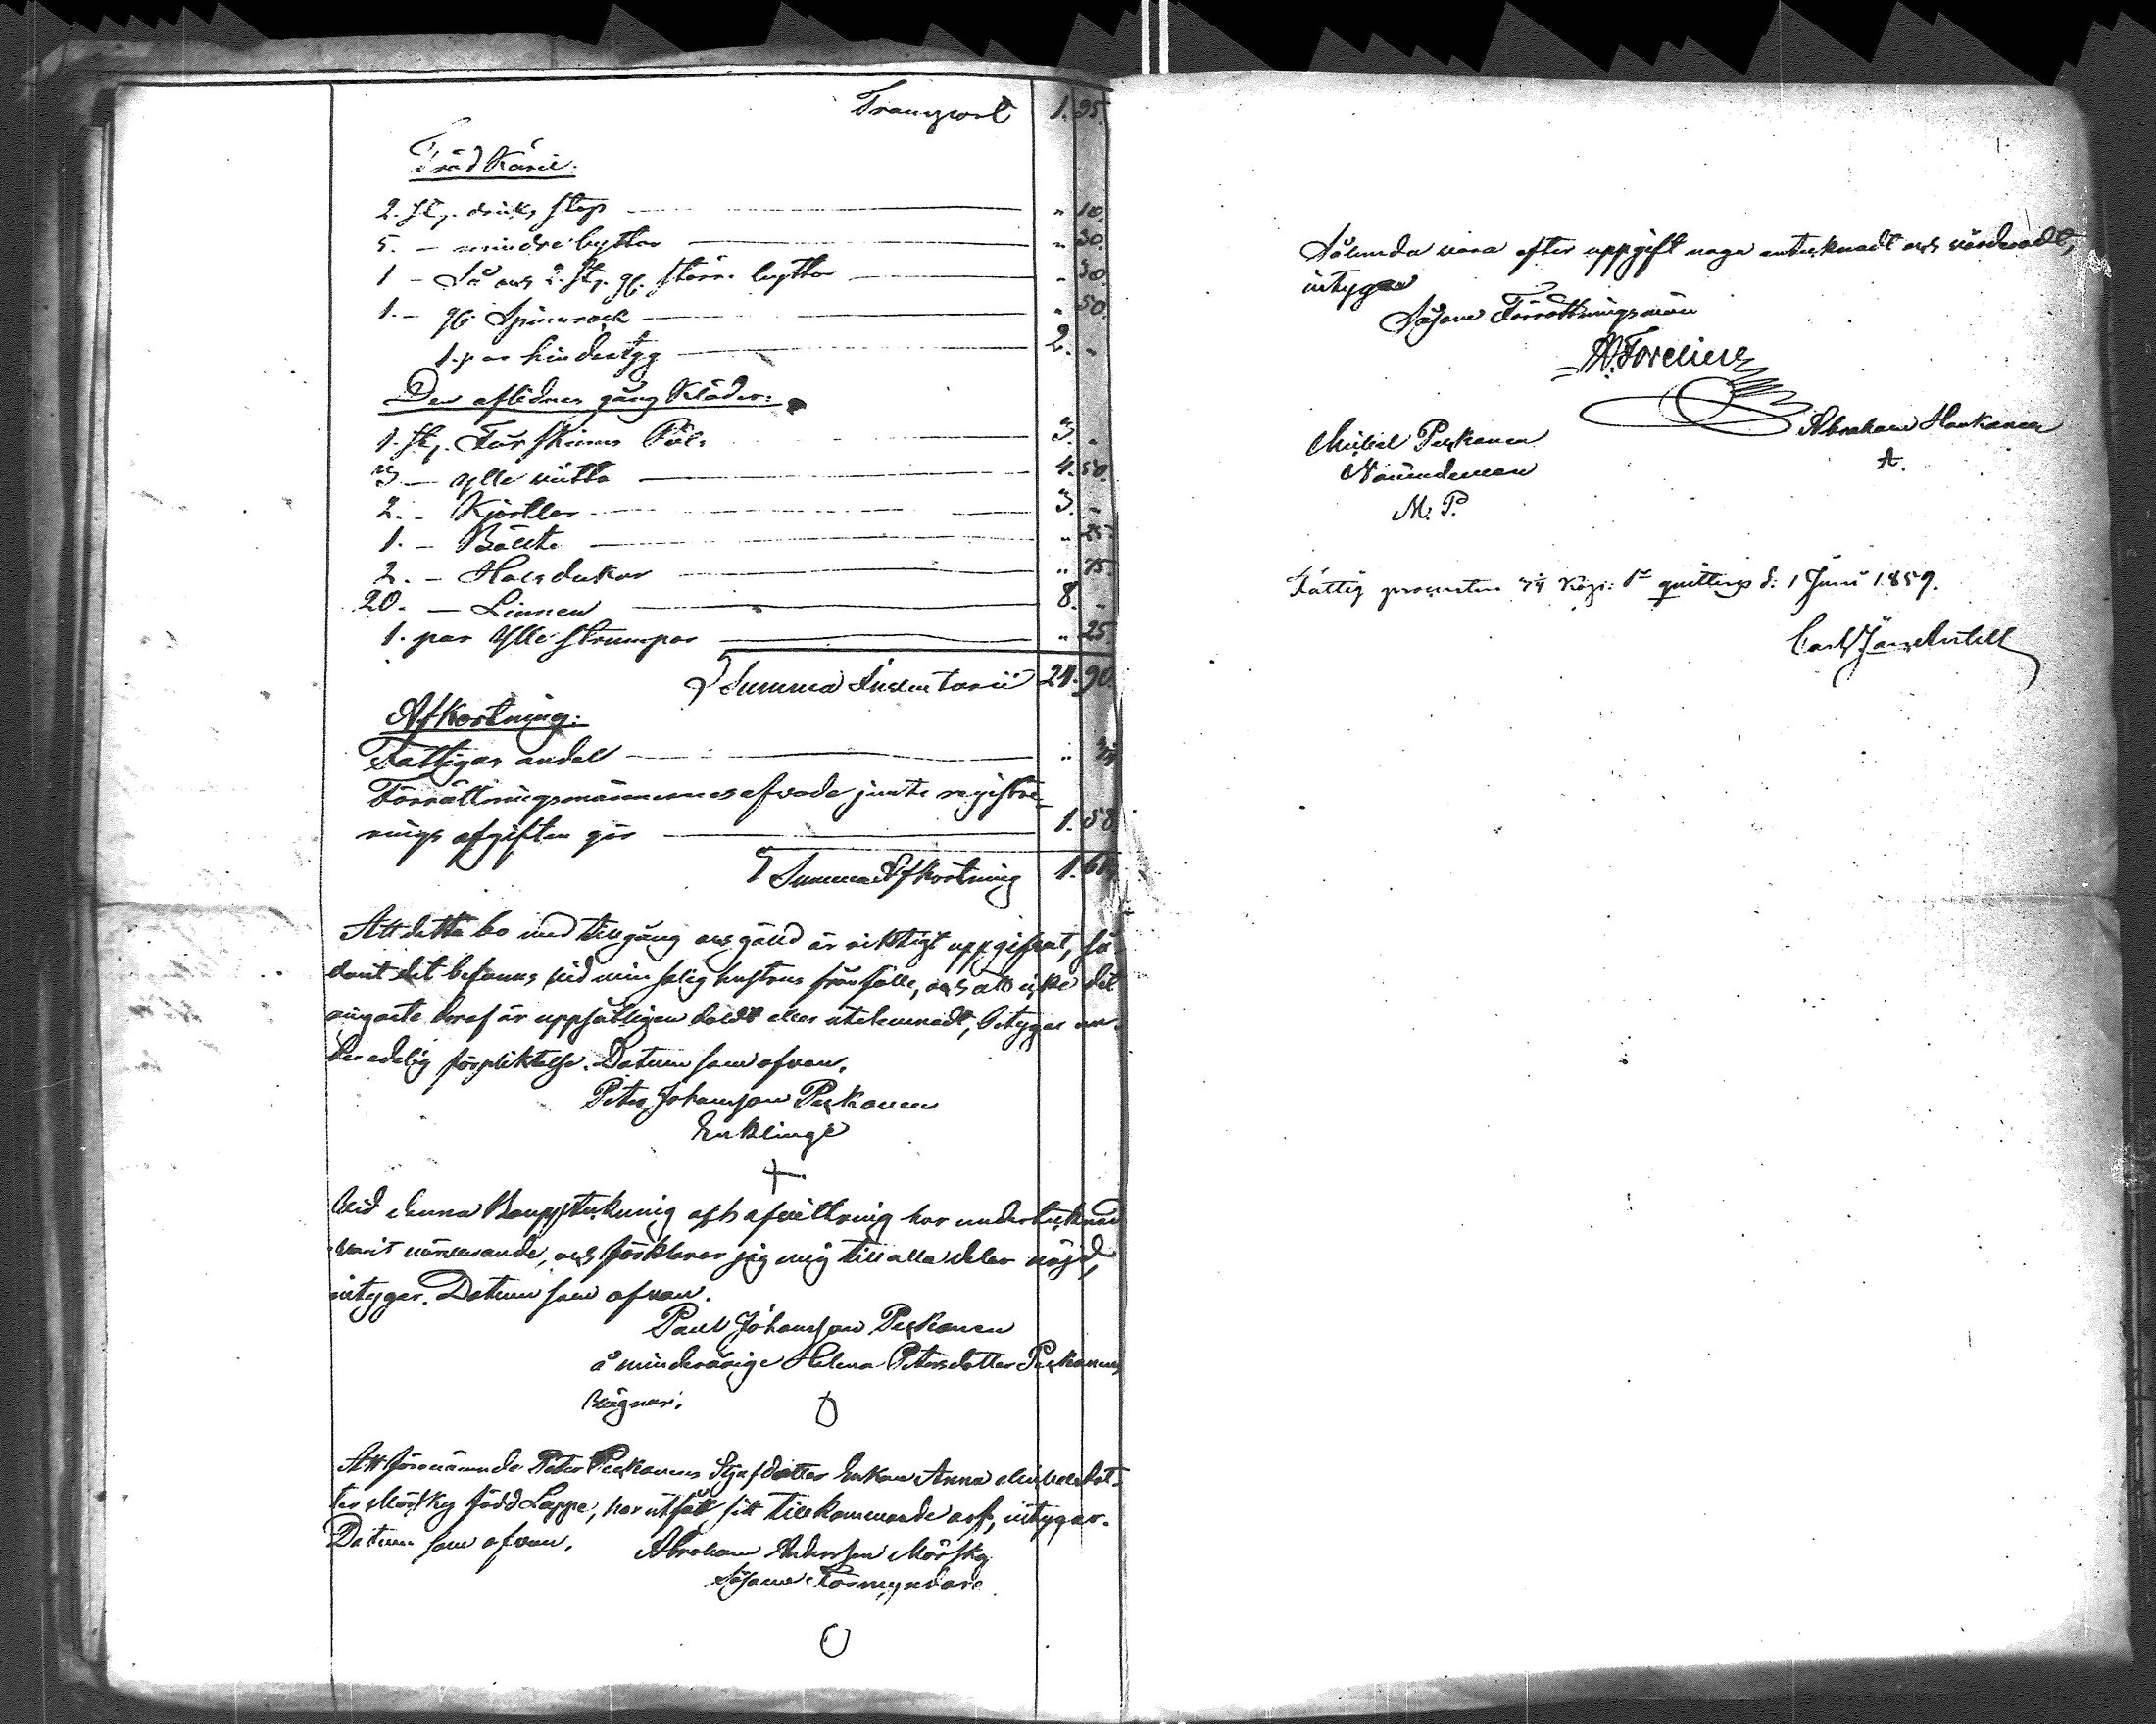 Transport 1. 95.
Träd Käril:
2. stz. dricks stop " 10.
5. — mindre byttor " 30.
1 — Så och 2. stz. gl. större byttor " 30.
1. — gl. Spinnrock " 50.
1. par hindertyg 2. "
Den aflidnes gång Kläder:
1. stz. Fårskinns Päls 3. "
3 — ylle 4. 50.
2. — Kjortlar 3. "
1. — Bälte " 25
2. — Halsdukar " 75.
20. — Linnen 8. "
1. par Ylle strumpor " 25.
Summa Inventarii 90
Afkortning:
Fattigas andel "
Förrättningsmännernes arfvode jemte registre-
rings afgiften gör 1. 58
Summa Afkortning 1.
Att detta bo med tillgång och gäld är riktigt uppgifvet, så-
dant det befanns vid min salig hustrus frånfälle, och att icke det
ringaste deraf är uppsåtligen doldt eller utelemnadt, betygas un-
der edelig förpliktelse. Datum som ofvan.
Peter Johansson Peskonen
Enklinge
+
Vid denna Bouppteckning och afvittring har undertecknad
varit närvarande, och förklarar jag mig till alla delar nöjd,
intygar. Datum som ofvan.
Paul Johansson Peskonen
å minderårige Helena Petersdotter Peskonens
vägnar.
Att förenämnde Peter Peskonens Styfdotter Enkan Anna Michelsdot-
ter Mörsky född Lappe, har utfått sitt tillkommande arf, intygar.
Datum som ofvan. Abraham Andersson Mörsky
Såsom Förmyndare
Sålunda vara efter uppgift noga antecknadt och värderadt,
intyga
Såsom Förrättningsmän
Michel Peskonen Abraham Hankanen
Nämndeman A.
M. P.
Fattig procenten Kop: Sr quitteras d: 1 Juni 1859.
Carl